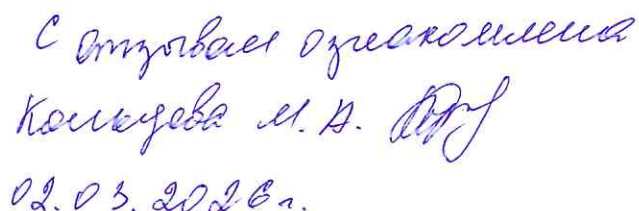 С отзывом ознакомлена
Кольцова М. А.
02.03.2026 г.